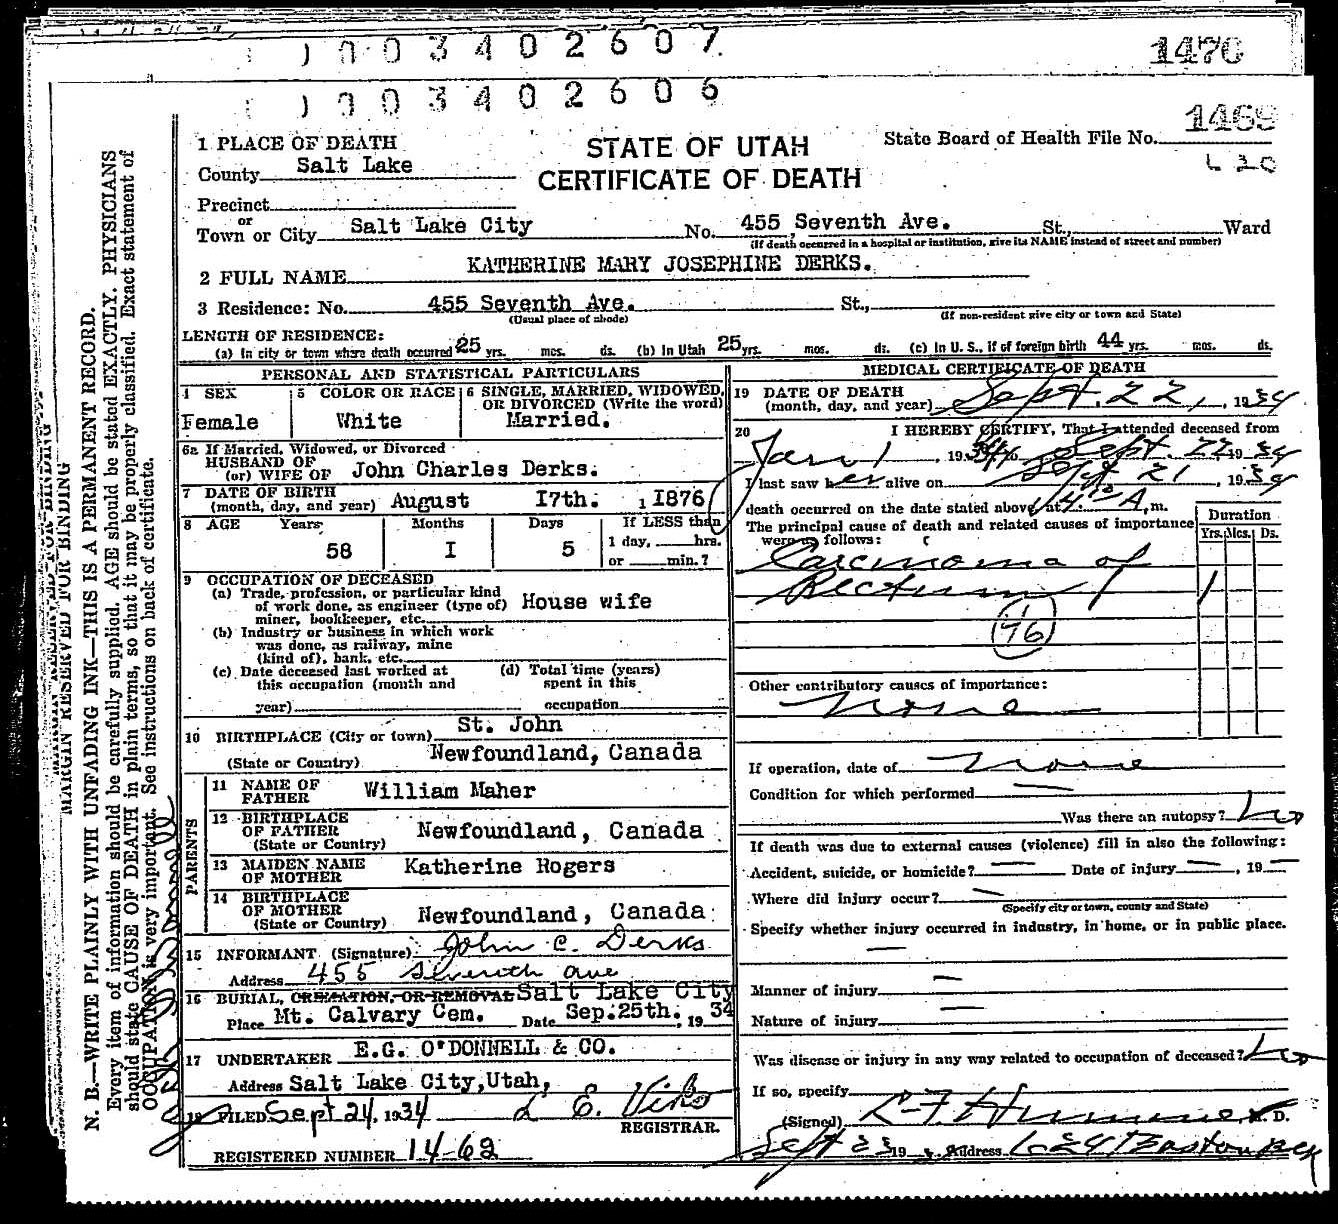 0 0 3 4 0 2 6 0 7
1470
0 0 3 4 0 2 6 0 6
1469
1 PLACE OF DEATH
STATE OF UTAH
CERTIFICATE OF DEATH
State Board of Health File No.
County Salt Lake
Precinct
or
Town or City Salt Lake City No. 455 Seventh Ave. St., Ward
(If death occurred in a hospital or institution, give its NAME instead of street and number)
2 FULL NAME KATHERINE MARY JOSEPHINE DERKS.
3 Residence: No. 455 Seventh Ave. St.,
(Usual place of abode) (If non-resident give city or town and State)
LENGTH OF RESIDENCE:
(a) In city or town where death occurred 25 yrs. mos. ds. (b) In Utah 25 yrs. mos. ds. (c) In U. S., if of foreign birth 44 yrs. mos. ds.
PERSONAL AND STATISTICAL PARTICULARS
4 SEX Female
5 COLOR OR RACE White
6 SINGLE, MARRIED, WIDOWED, OR DIVORCED (Write the word) Married.
6a If Married, Widowed, or Divorced
HUSBAND OF
(or) WIFE OF John Charles Derks.
7 DATE OF BIRTH
(month, day, and year) August 17th. , 1876
8 AGE Years Months Days If LESS than
58 I 5 1 day, hrs.
or min.?
9 OCCUPATION OF DECEASED
(a) Trade, profession, or particular kind
of work done, as engineer (type of)
miner, bookkeeper, etc. House wife
(b) Industry or business in which work
was done, as railway, mine
(kind of), bank, etc.
(c) Date deceased last worked at
this occupation (month and
year)
(d) Total time (years)
spent in this
occupation
10 BIRTHPLACE (City or town) St. John
(State or Country) Newfoundland, Canada
PARENTS
11 NAME OF
FATHER William Maher
12 BIRTHPLACE
OF FATHER
(State or Country) Newfoundland, Canada
13 MAIDEN NAME
OF MOTHER Katherine Rogers
14 BIRTHPLACE
OF MOTHER
(State or Country) Newfoundland, Canada
15 INFORMANT (Signature) John C. Derks
Address 455 Seventh Ave
16 BURIAL, CREMATION, OR REMOVAL Salt Lake City
Place Mt. Calvary Cem. Date Sep. 25th. , 19 34
17 UNDERTAKER E.G. O'DONNELL & CO.
Address Salt Lake City, Utah,
18 FILED Sept 24, 1934
REGISTRAR.
REGISTERED NUMBER 1462
MEDICAL CERTIFICATE OF DEATH
19 DATE OF DEATH
(month, day, and year) Sept. 22, , 1934
20 I HEREBY CERTIFY, That I attended deceased from
Jan 1 , 1934 to Sept. 22 1934
I last saw her alive on Sept 21 , 1934
death occurred on the date stated above, at 4.10 A. m.
The principal cause of death and related causes of importance
were as follows:
Duration
Yrs. Mos. Ds.
Carcinoma of
Rectum 1
46
Other contributory causes of importance:
None
If operation, date of None
Condition for which performed —
Was there an autopsy? No
If death was due to external causes (violence) fill in also the following:
Accident, suicide, or homicide? — Date of injury — , 19 —
Where did injury occur? —
(Specify city or town, county and State)
Specify whether injury occurred in industry, in home, or in public place.
—
Manner of injury —
Nature of injury —
Was disease or injury in any way related to occupation of deceased? No
If so, specify
(Signed) M. D.
Sept 23 19 Address
MARGIN RESERVED FOR BINDING
N. B.—WRITE PLAINLY WITH UNFADING INK—THIS IS A PERMANENT RECORD.
Every item of information should be carefully supplied. AGE should be stated EXACTLY. PHYSICIANS
should state CAUSE OF DEATH in plain terms, so that it may be properly classified. Exact statement of
OCCUPATION is very important. See instructions on back of certificate.